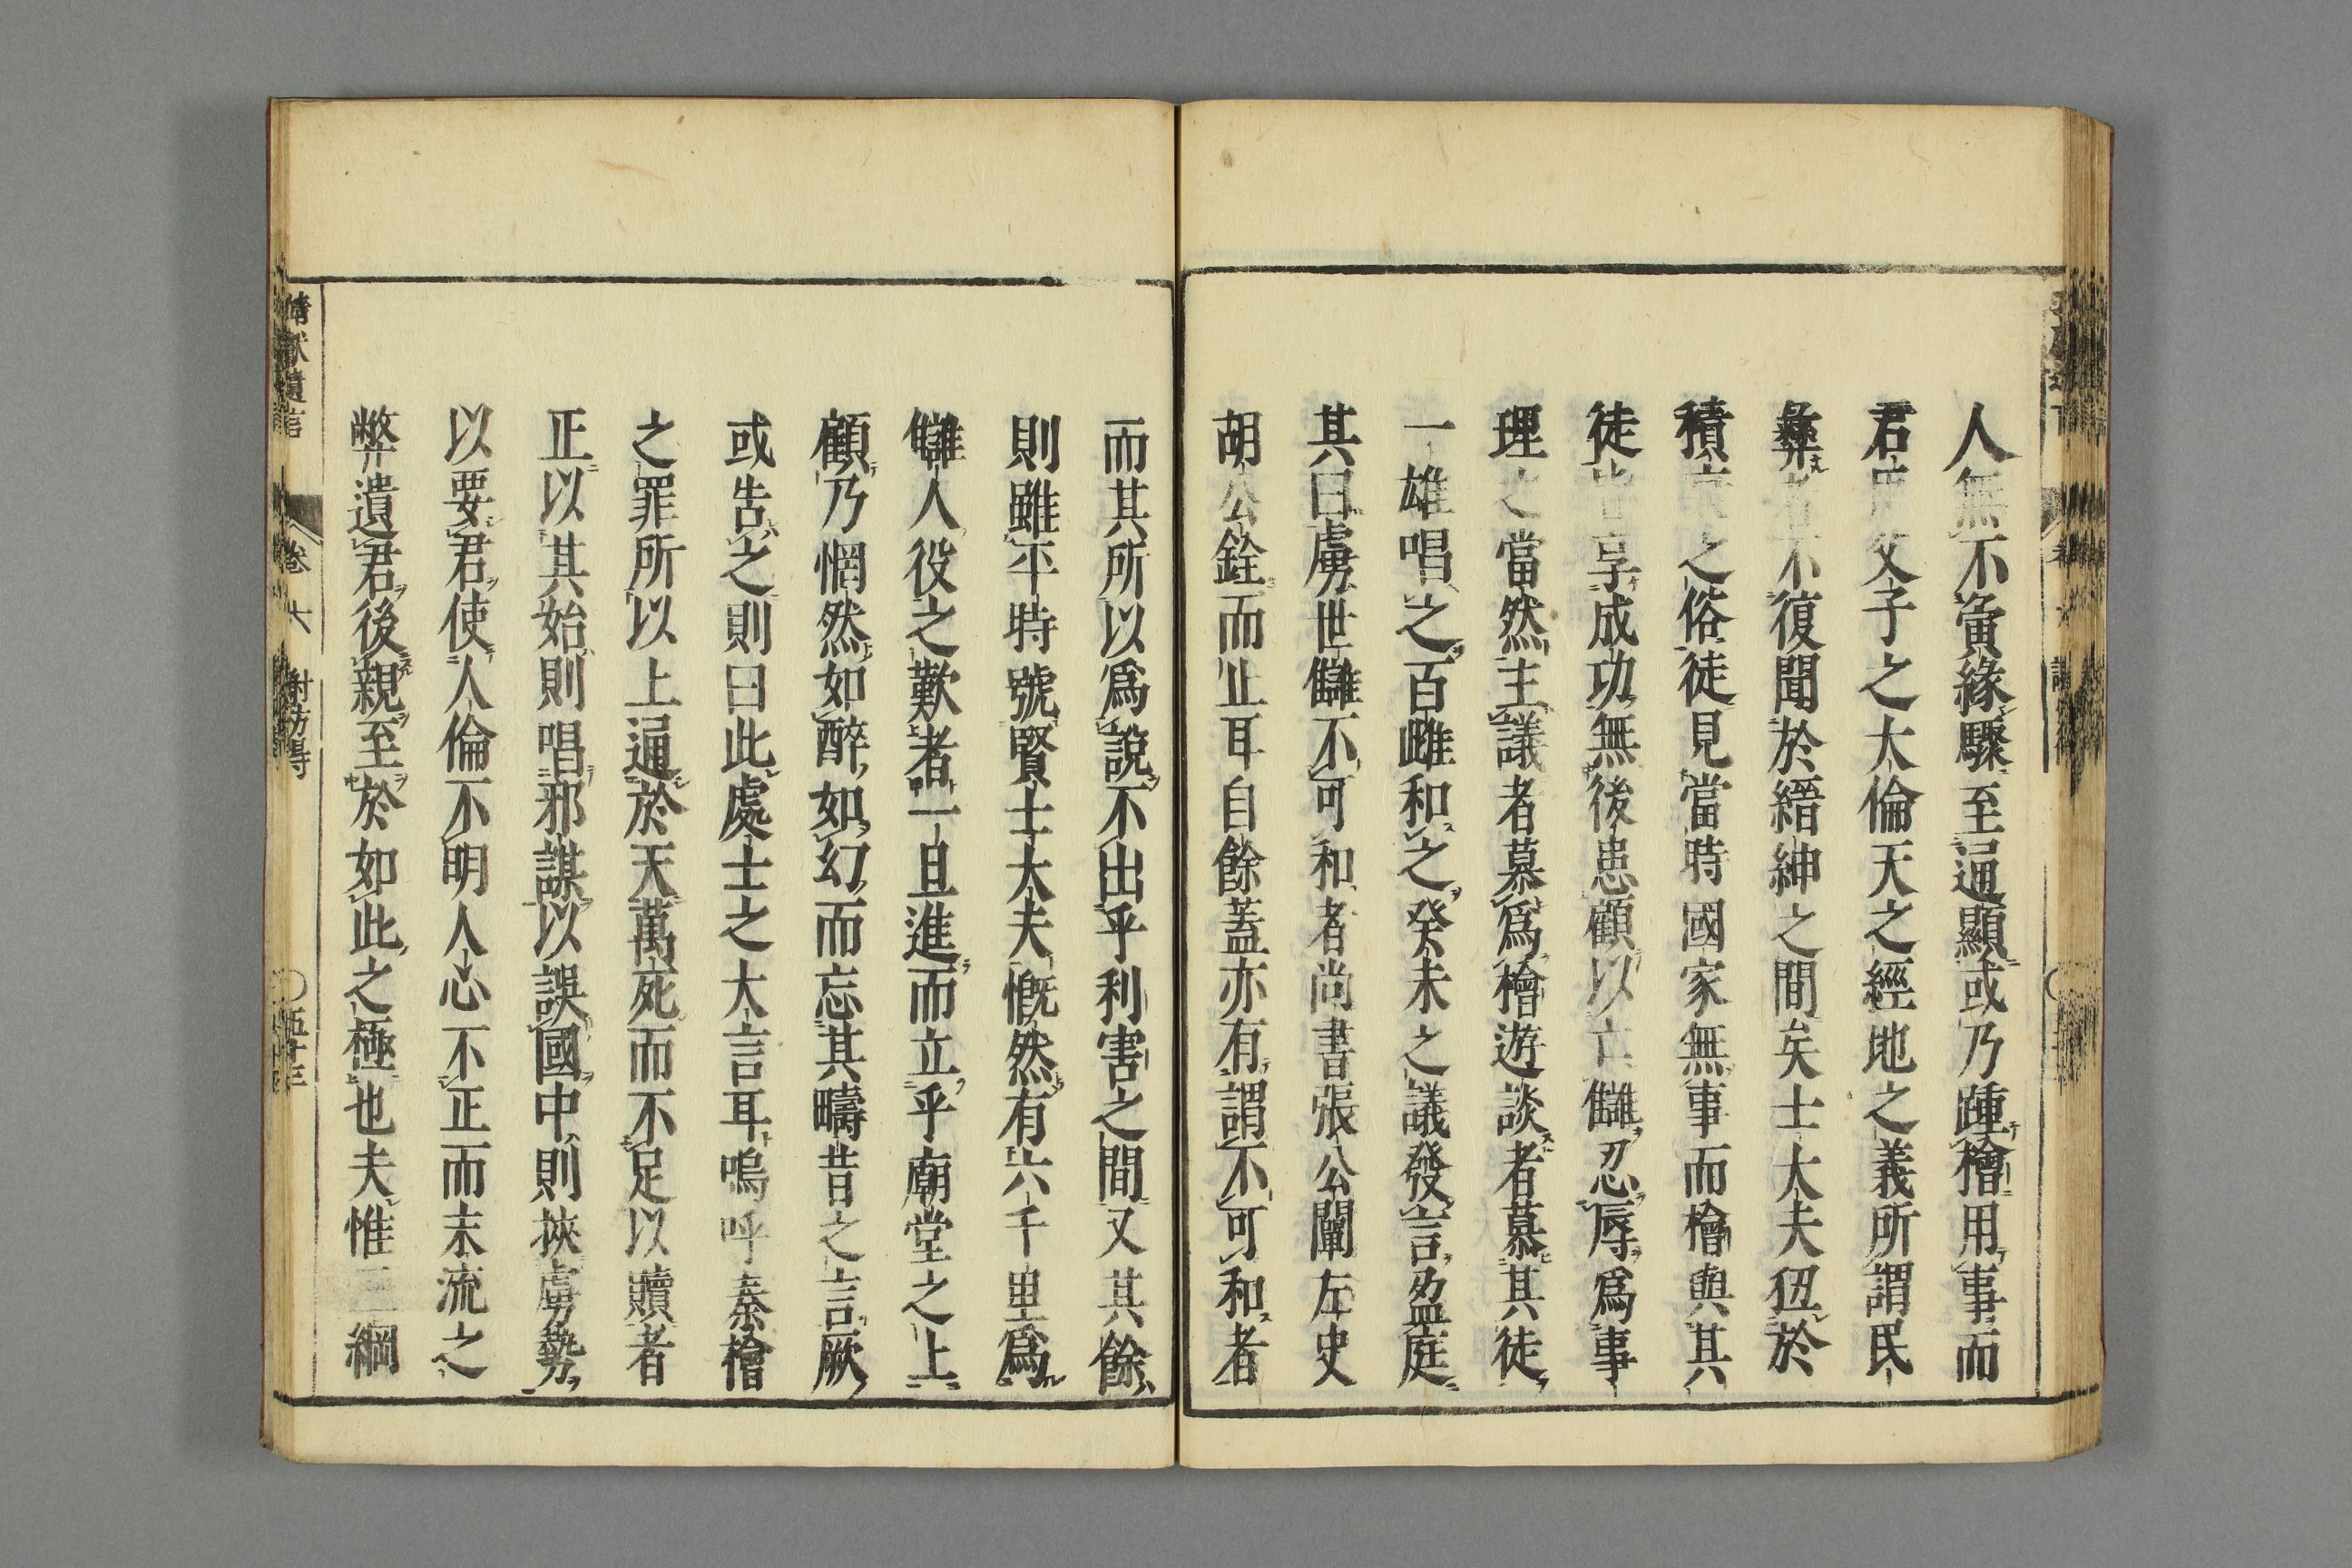 人無不夤緣驟至通顯或乃踵檜用事而
君臣父子之大倫天之經地之義所謂民
彝者不復聞於縉紳之間矣士大夫狃於
積衰之俗徒見當時國家無事而檜與其
徒皆享成功無後患顧以亡讎忍辱爲事
理之當然主議者慕爲檜遊談者慕其徒
一雄唱之百雌和之癸未之議發言盈庭
其曰虜世讎不可和者尚書張公闡左史
胡公銓而止耳自餘蓋亦有謂不可和者
而其所以爲說不出乎利害之間又其餘
則雖平時號賢士大夫慨然有六千里爲
讎人役之歎者一旦進而立乎廟堂之上
顧乃惘然如醉如幻而忘其疇昔之言厥
或告之則曰此處士之大言耳嗚呼秦檜
之罪所以上通於天萬死而不足以贖者
正以其始則唱邪謀以誤國中則挾虜勢
以要君使人倫不明人心不正而末流之
弊遺君後親至於如此之極也夫惟三綱
靖獻遺言 卷六 謝枋得 〇五十三